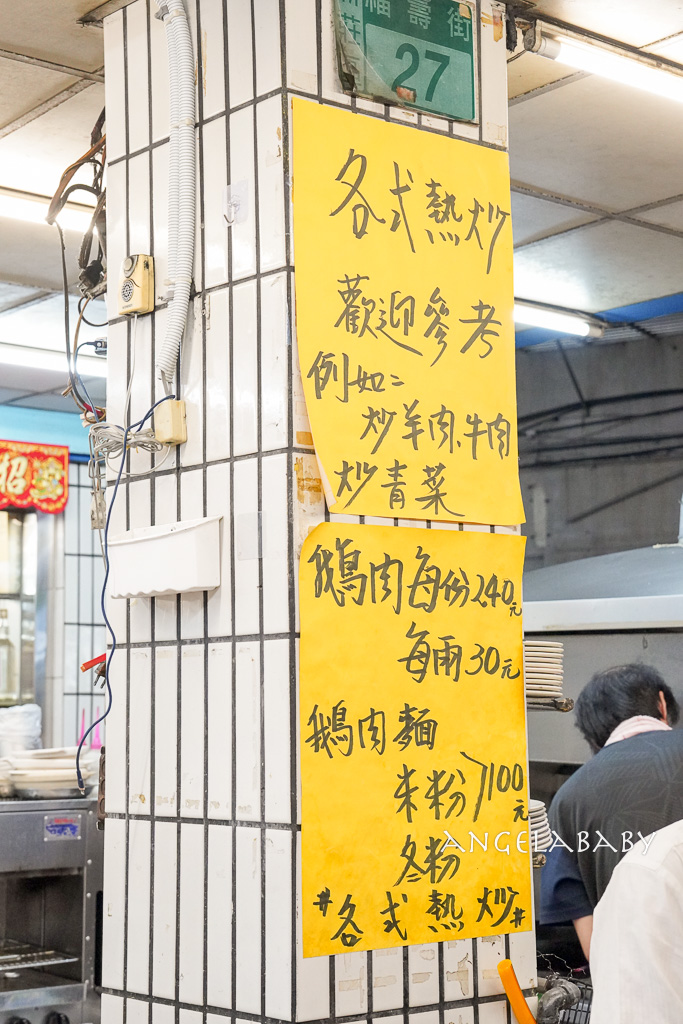 福壽街
27
各式熱炒
歡迎參考
例如：
炒羊肉、牛肉
炒青菜
鵝肉每份240元
每兩30元
鵝肉麵
米粉 100元
冬粉
#各式熱炒#
招
ANGELABABY